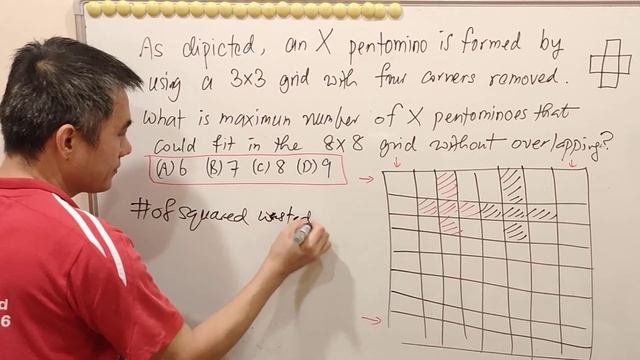 As dipicted, an X pentomino is formed by
using a 3x3 grid with four corners removed.
What is maximun number of X pentominoes that
could fit in the 8x8 grid without overlapping?
(A) 6 (B) 7 (C) 8 (D) 9
# of squared wasted
d
6